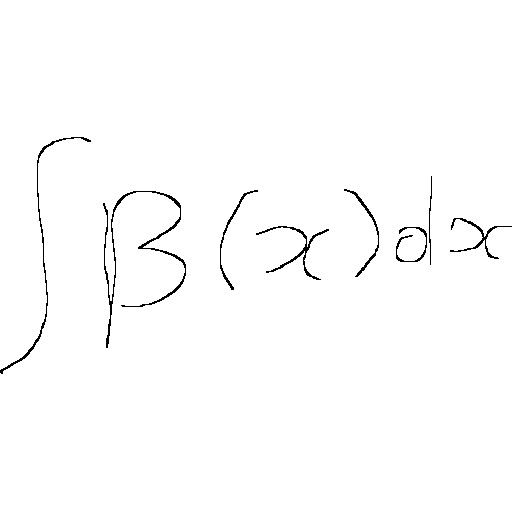 ∫β(x)dx